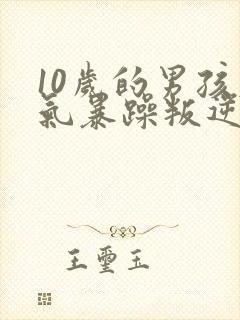 10歲的男孩
氣暴躁叛逆
王璽玉